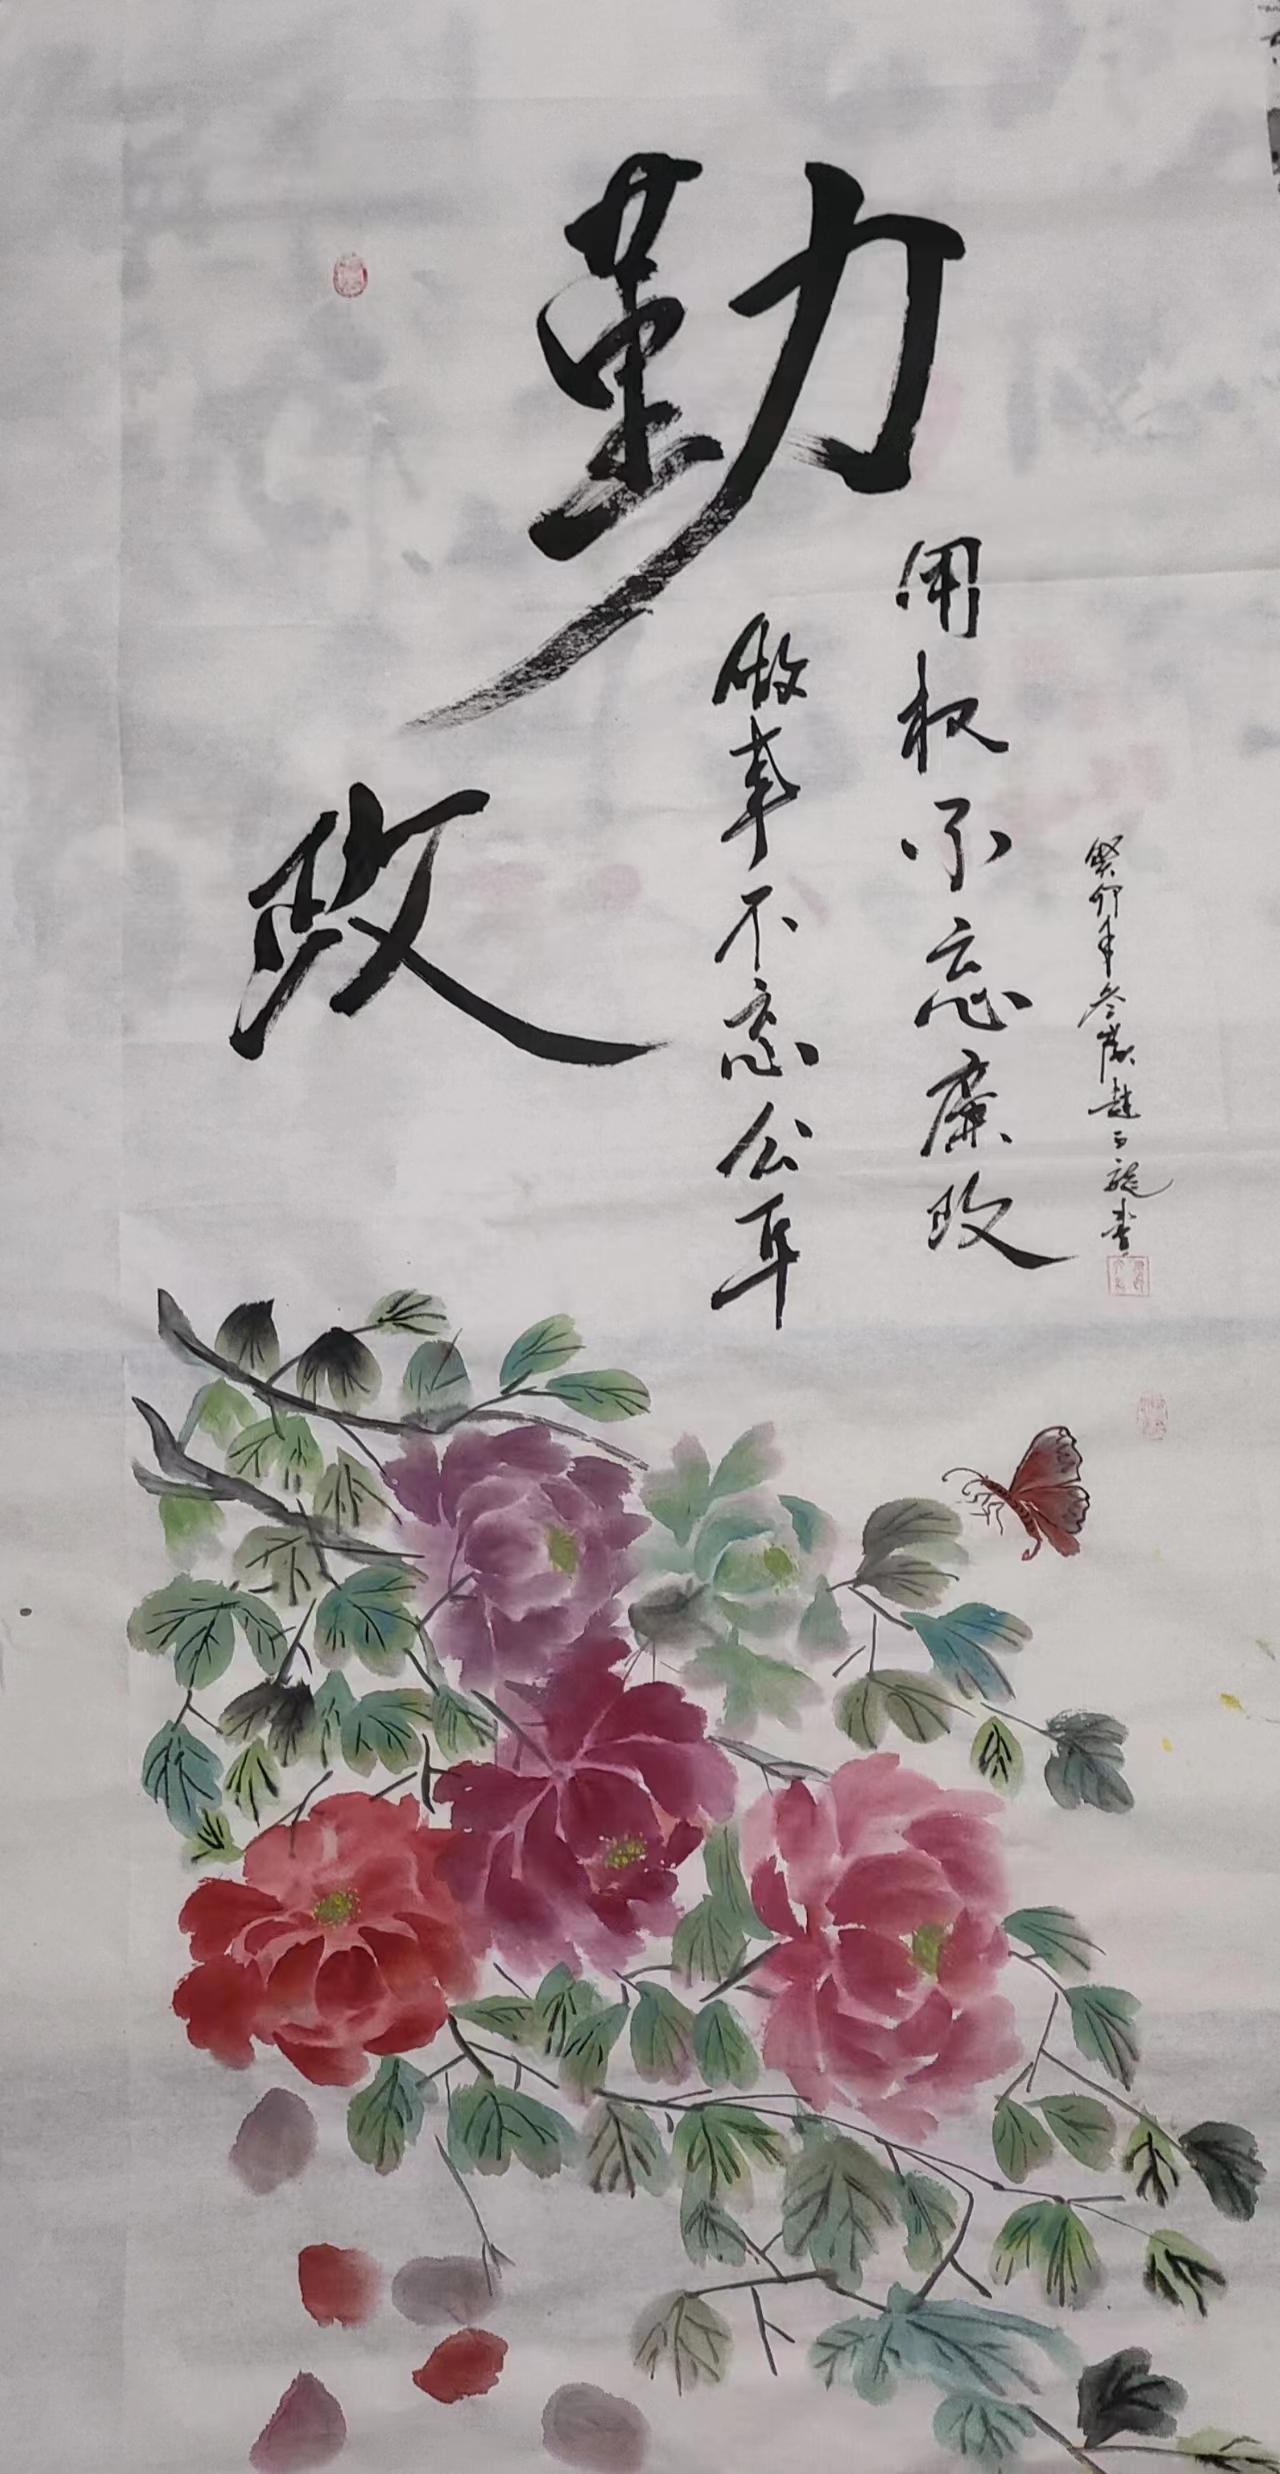 勤政
用权不忘廉政
做事不忘公平
癸卯年冬岁赵书